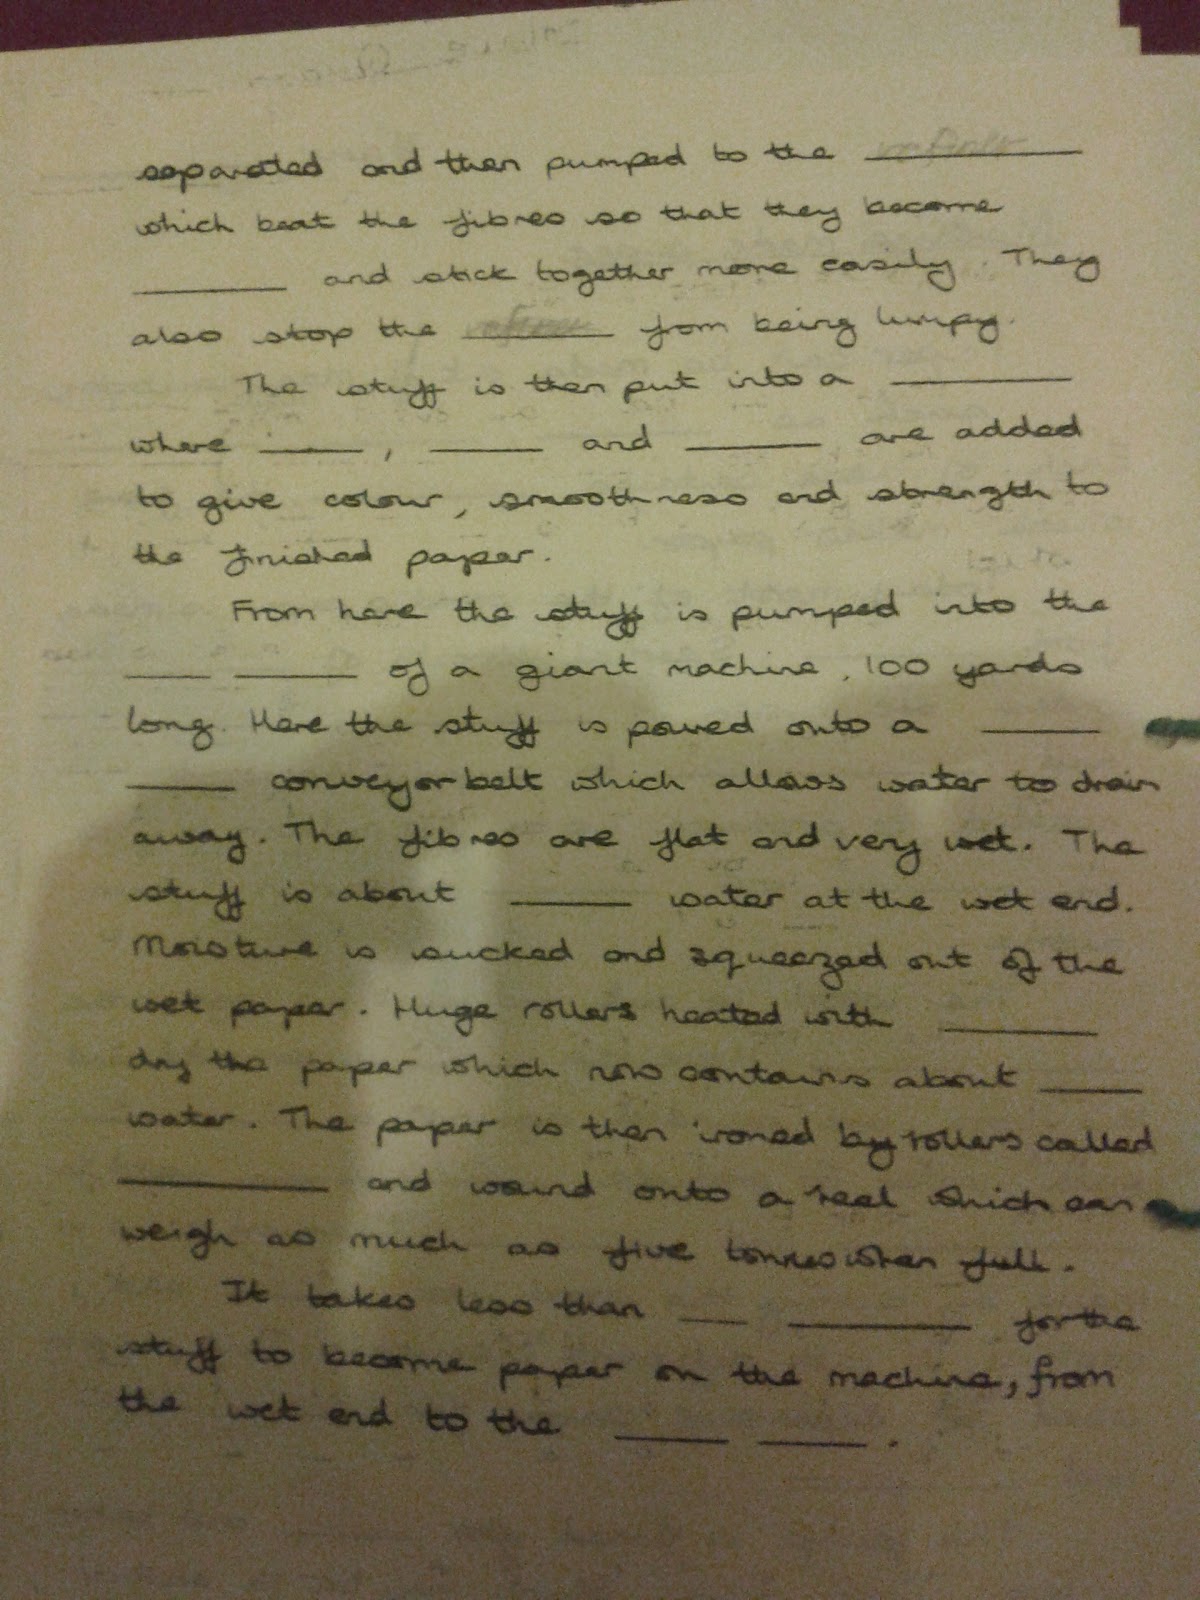 separated and then pumped to the ________
which beat the fibres so that they become
________ and stick together more easily. They
also stop the refiner from being lumpy.
The stuff is then put into a ________
where ____, ____ and ____ are added
to give colour, smoothness and strength to
the finished paper.
From here the stuff is pumped into the
____ ____ of a giant machine, 100 yards
long. Here the stuff is poured onto a ____
____ conveyor belt which allows water to drain
away. The fibres are flat and very wet. The
stuff is about ____ water at the wet end.
Moisture is sucked and squeezed out of the
wet paper. Huge rollers heated with ____
dry the paper which now contains about ____
water. The paper is then ironed by rollers called
________ and wound onto a reel which can
weigh as much as five tonnes when full.
It takes less than ____ ____ for the
stuff to become paper on the machine, from
the wet end to the ____ ____.